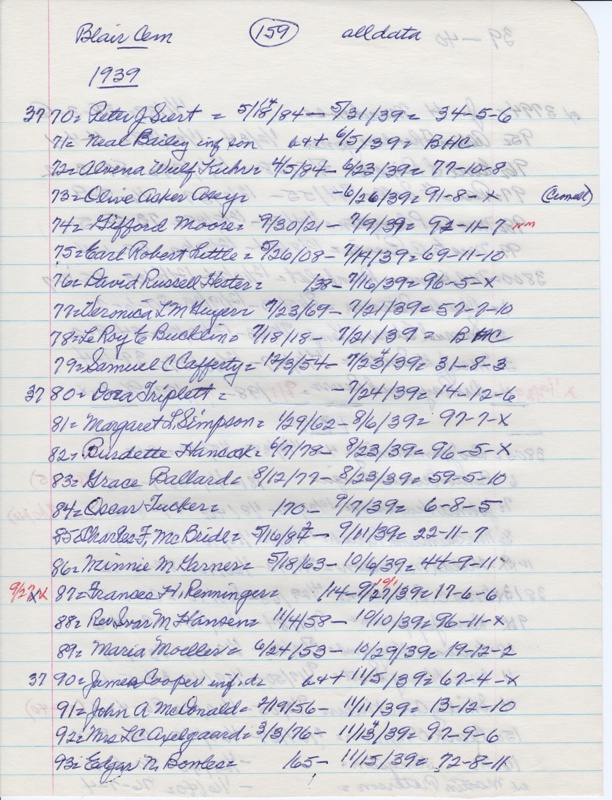 Blair Cem 159 alldata
1939
37 70= Peter J Siert = 5/18/84 - 5/31/39 = 34-5-6
71= Neal Bailey inf son 6/5/39= BHC
72= Alvena Wulf Kuhr= 4/5/84- 6/23/39= 77-10-8
73= Olive Acker -6/26/39= 91-8-X
74= Gifford Moore= 9/30/21- 7/9/39= 92-11-7
75= Earl Robert Little= 5/26/08- 7/14/39= 69-11-10
76= David Russell Hester= /38- 7/16/39= 96-5-X
77= L M 7/23/69- 7/21/39= 57-7-10
78= LeRoy E Bucklin= 7/18/18- 7/21/39 = BHC
79= Samuel C Cafferty= 12/3/54= 7/23/39= 31-8-3
37 80= Dora Triplett = -7/24/39= 14-12-6
81= Margaret L Simpson= 1/29/62- 8/6/39= 97-7-X
82= Burdette Hancock= 6/7/78- 8/23/39= 96-5-X
83= Grace Ballard= 8/12/77- 8/23/39= 59-5-10
84= Oscar Tucker= /70- 9/7/39= 6-8-5
85 Charles F. McBride= 5/16/87- 9/11/39= 22-11-7
86= Minnie M Garner= 5/18/63- 10/6/39= 44-9-11
9/27 XX 87= Frances H. Renninger= /14- 9/27/39= 17-6-6
88= Rev Ivar M. Hansen= 11/4/58- 10/10/39= 96-11-X
89= Maria Moeller= 6/24/53- 10/29/39= 19-12-2
37 90= James Cooper inf. 11/5/39= 67-4-X
91= John A McDonald= 2/19/56- 11/11/39= 13-12-10
92= Mrs LC Axelgaard= 3/3/76- 11/13/39= 97-9-6
93= Edgar N. Bowles= /65- 11/15/39= 72-8-11